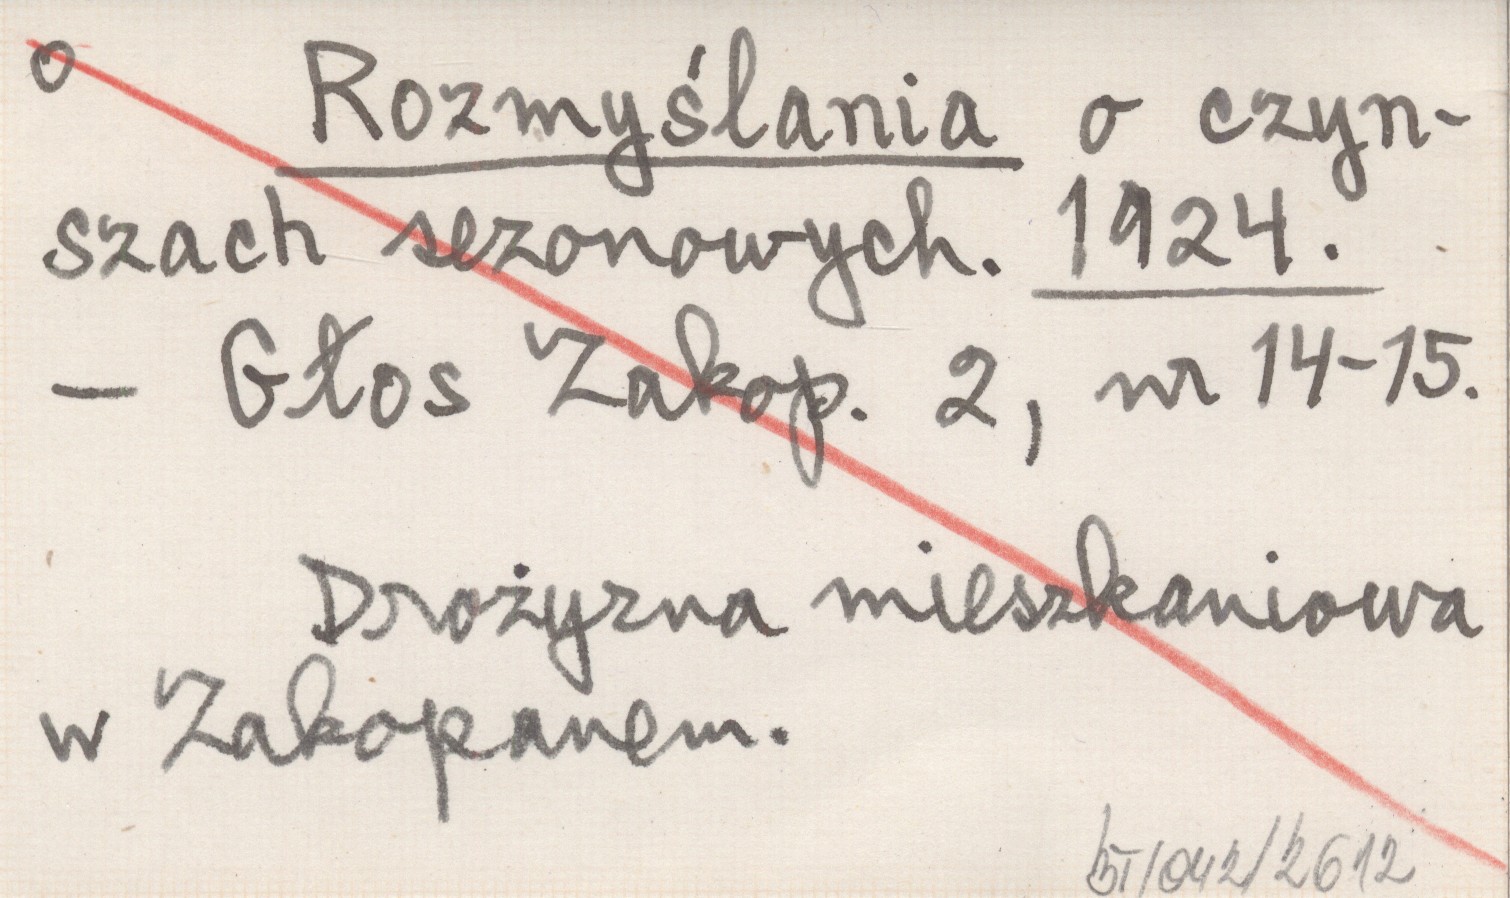 o Rozmyślania o czyn-
szach sezonowych. 1924.
— Głos Zakop. 2, nr 14-15.
Drożyzna mieszkaniowa
w Zakopanem.
/042/2612